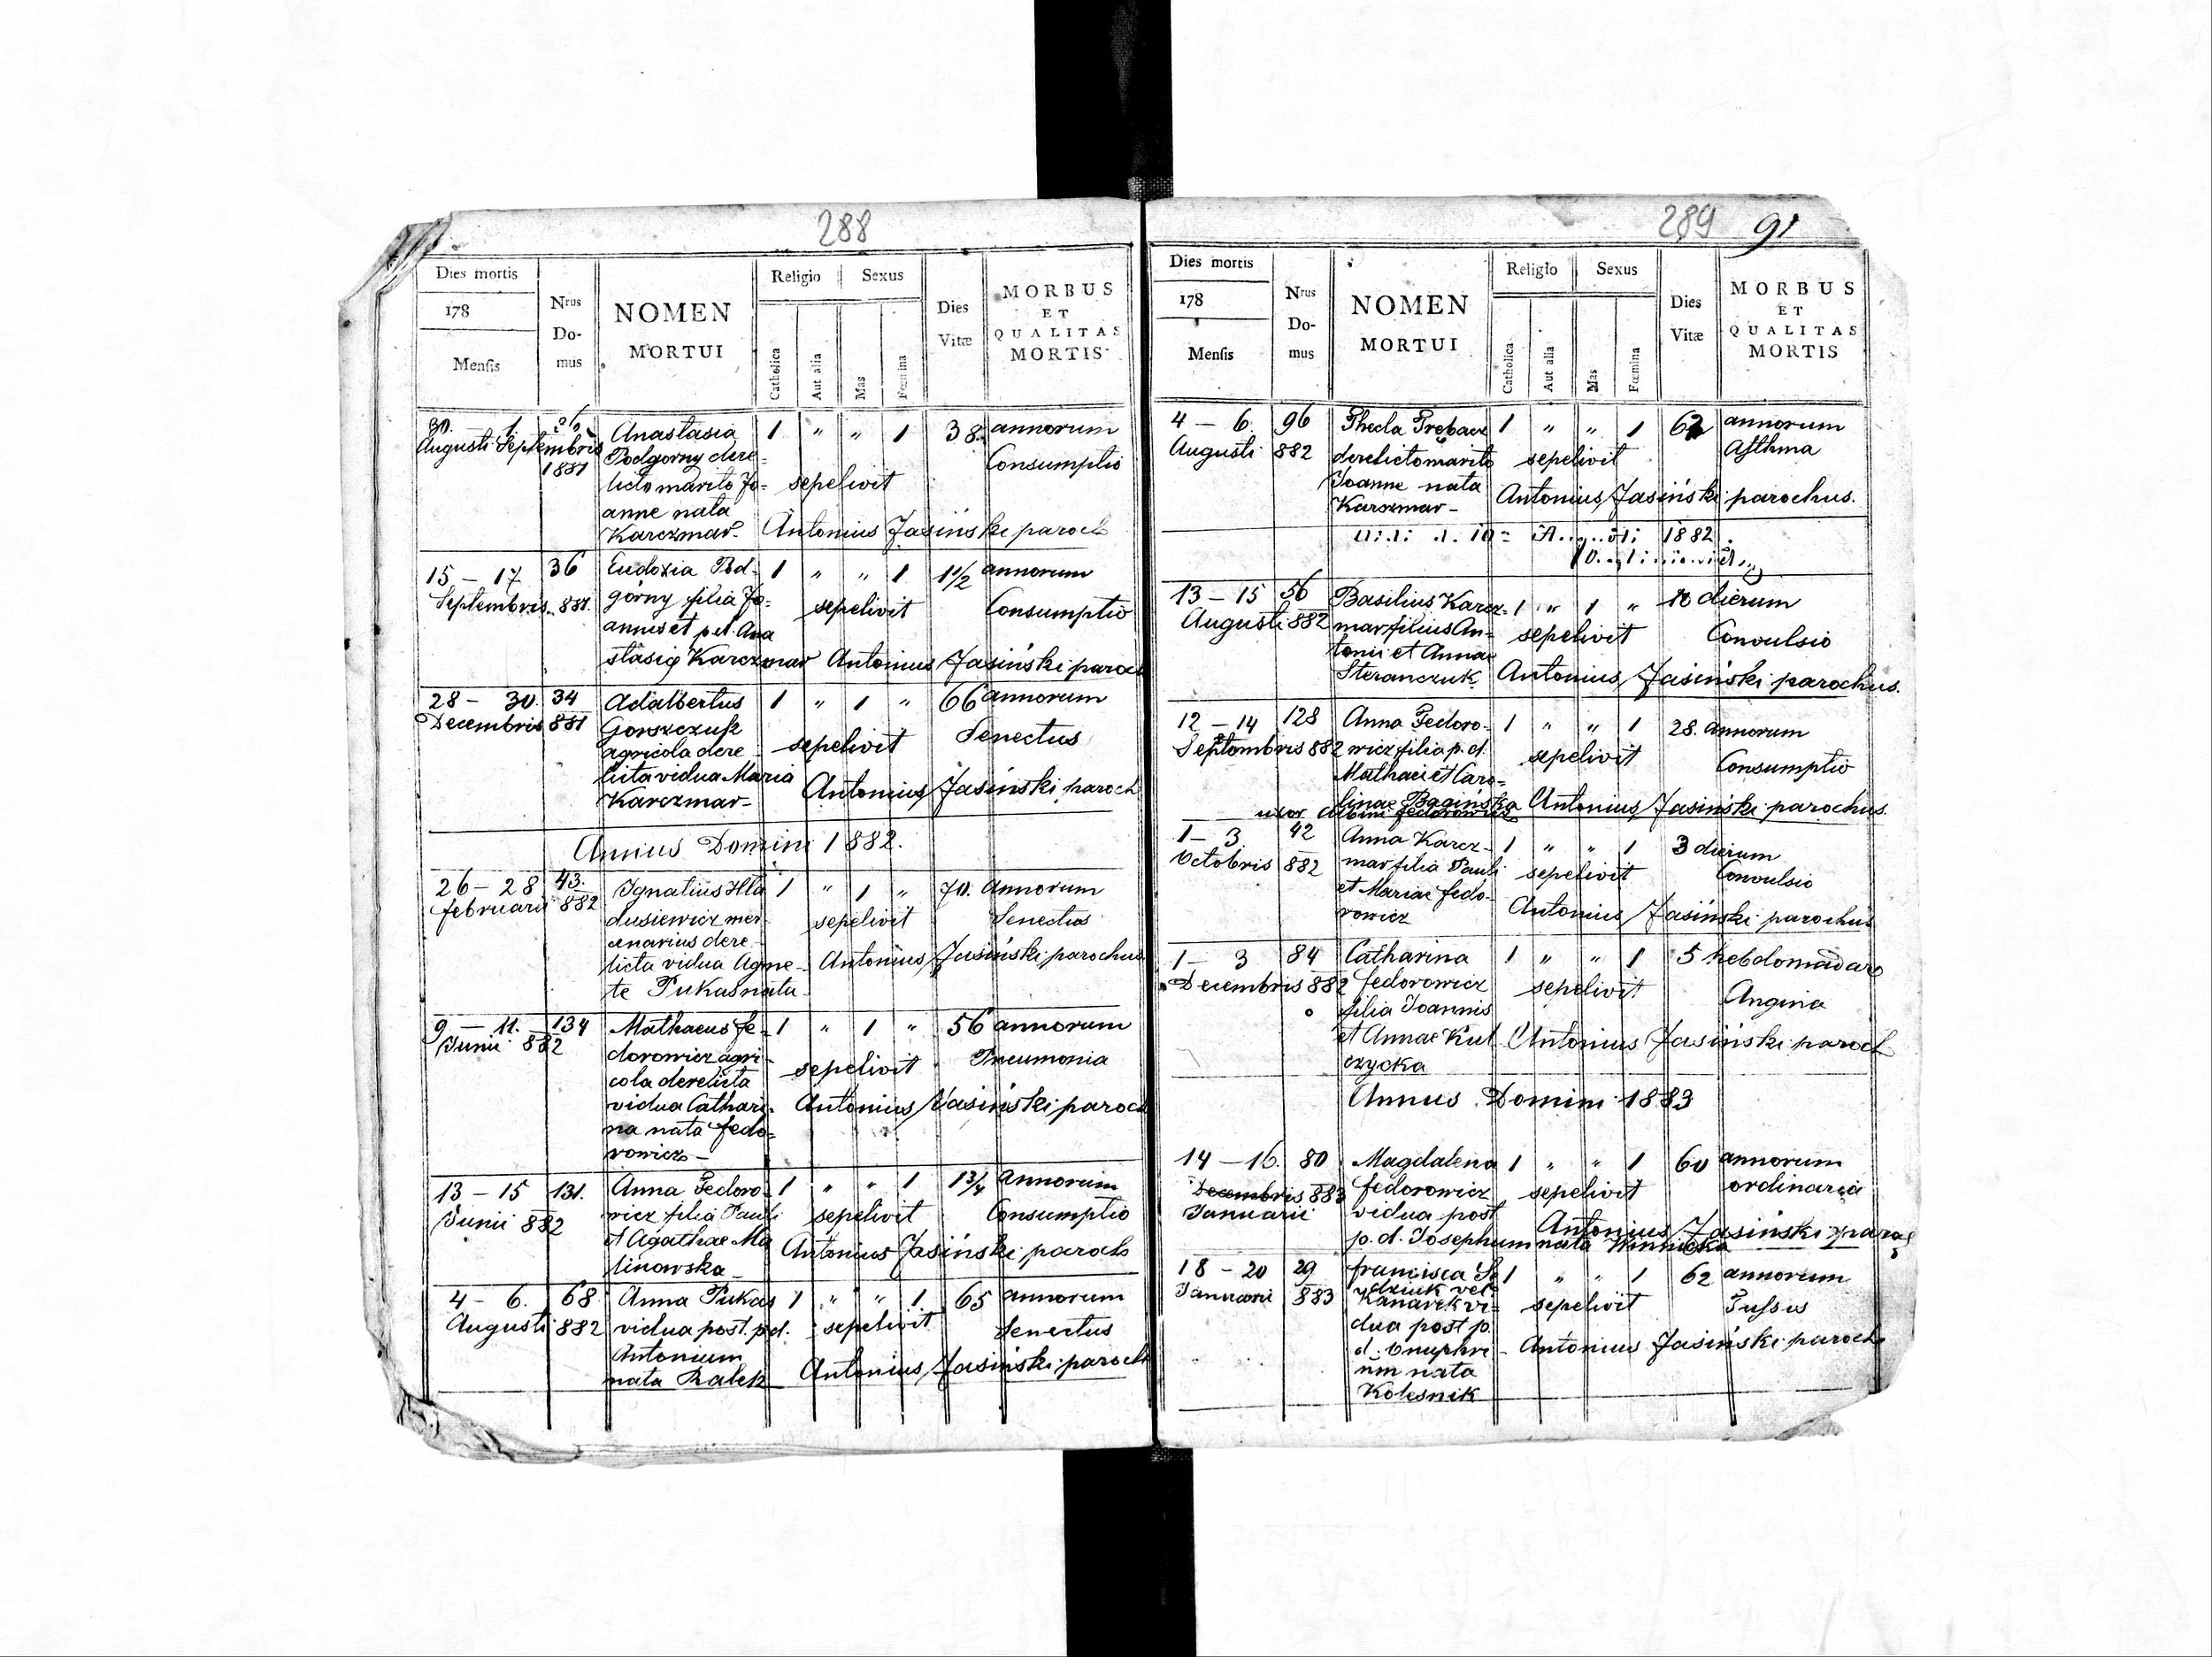 288
Dies mortis
178
Mensis
Nrus Domus
NOMEN MORTUI
Religio
Catholica
Aut alia
Sexus
Mas
Fœmina
Dies Vitæ
MORBUS ET QUALITAS MORTIS
30. 1. Anastasia 1 " " 1 38 annorum
Augusti Septembris Podgorny dere- Consumptio
1881 licto marito Jo- sepelivit
anne nata
Karczmar- Antonius Jasiński paroch
15 - 17 36 Eudoxia Pod- 1 " " 1 1 1/2 annorum
Septembris 881. górny filia Jo- sepelivit Consumptio
annis et p. d. Ana
stasię Karczmar Antonius Jasiński paroch
28 - 30. 34 Adalbertus 1 " 1 " 66 annorum
Decembris 881 Gorszczuk Senectus
agricola dere- sepelivit
licta vidua Maria
Karczmar- Antonius Jasiński paroch
Annus Domini 1882.
26 - 28 43. Ignatius Hla 1 " 1 " 70. annorum
februarii 882 dusiewicz mer- sepelivit Senectus
cenarius dere-
licta vidua Agne- Antonius Jasiński parochus
te Pukas nata
9 - 11. 134 Mathaeus fe- 1 " 1 " 56 annorum
Junii 882 dorowicz agri- sepelivit Pneumonia
cola derelicta
vidua Cathari- Antonius Jasiński paroch
na nata fedo-
rowicz-
13 - 15 131. Anna Fedoro- 1 " " 1 1 3/4 annorum
Junii 882 wicz filia Pauli sepelivit Consumptio
et Agathae Ma Antonius Jasiński paroch
linowska-
4 - 6. 68 Anna Pukas 1 " " 1 65 annorum
Augusti 882 vidua post. p. d. sepelivit Senectus
Antonium
nata Zalek Antonius Jasiński paroch
289 91
Dies mortis
178
Mensis
Nrus Domus
NOMEN MORTUI
Religio
Catholica
Aut alia
Sexus
Mas
Fœmina
Dies Vitæ
MORBUS ET QUALITAS MORTIS
4 - 6. 96 Thecla Trębacz 1 " " 1 annorum
Augusti 882 derelicto marito sepelivit Asthma
Joanne nata
Karczmar- Antonius Jasiński parochus.
1882
13 - 15 56 Basilius Karcz- 1 " 1 " dierum
Augusti 882 mar filius An- sepelivit Convulsio
tonii et Annae
Steranczuk Antonius Jasiński parochus.
12 - 14 128 Anna Fedoro- 1 " " 1 28. annorum
Septembris 882 wicz filia p. d. sepelivit Consumptio
Mathaei et Caro-
linae Bagińska Antonius Jasiński parochus.
uxor Albini fedorowicz
1 - 3 42 Anna Karcz- 1 " " 1 3 dierum
Octobris 882 mar filia Pauli sepelivit Convulsio
et Mariae fedo-
rowicz Antonius Jasiński parochus
1 - 3 84 Catharina 1 " " 1 5 hebdomadare
Decembris 882 fedorowicz sepelivit Angina
filia Joannis
et Annae Kul Antonius Jasiński paroch
czycka
Annus Domini 1883
14 - 16. 80 Magdalena 1 " " 1 60 annorum
Decembris 883 fedorowicz sepelivit ordinaria
Januarii vidua post
p. d. Josephum nata Winnicka Antonius Jasiński paroc
18 - 20 29 francisca 1 " " 1 62 annorum
Januarii 883 vel- sepelivit Tussis
Kanarek vi-
dua post p. Antonius Jasiński paroch
d. Onuphri-
um nata
Kolesnik